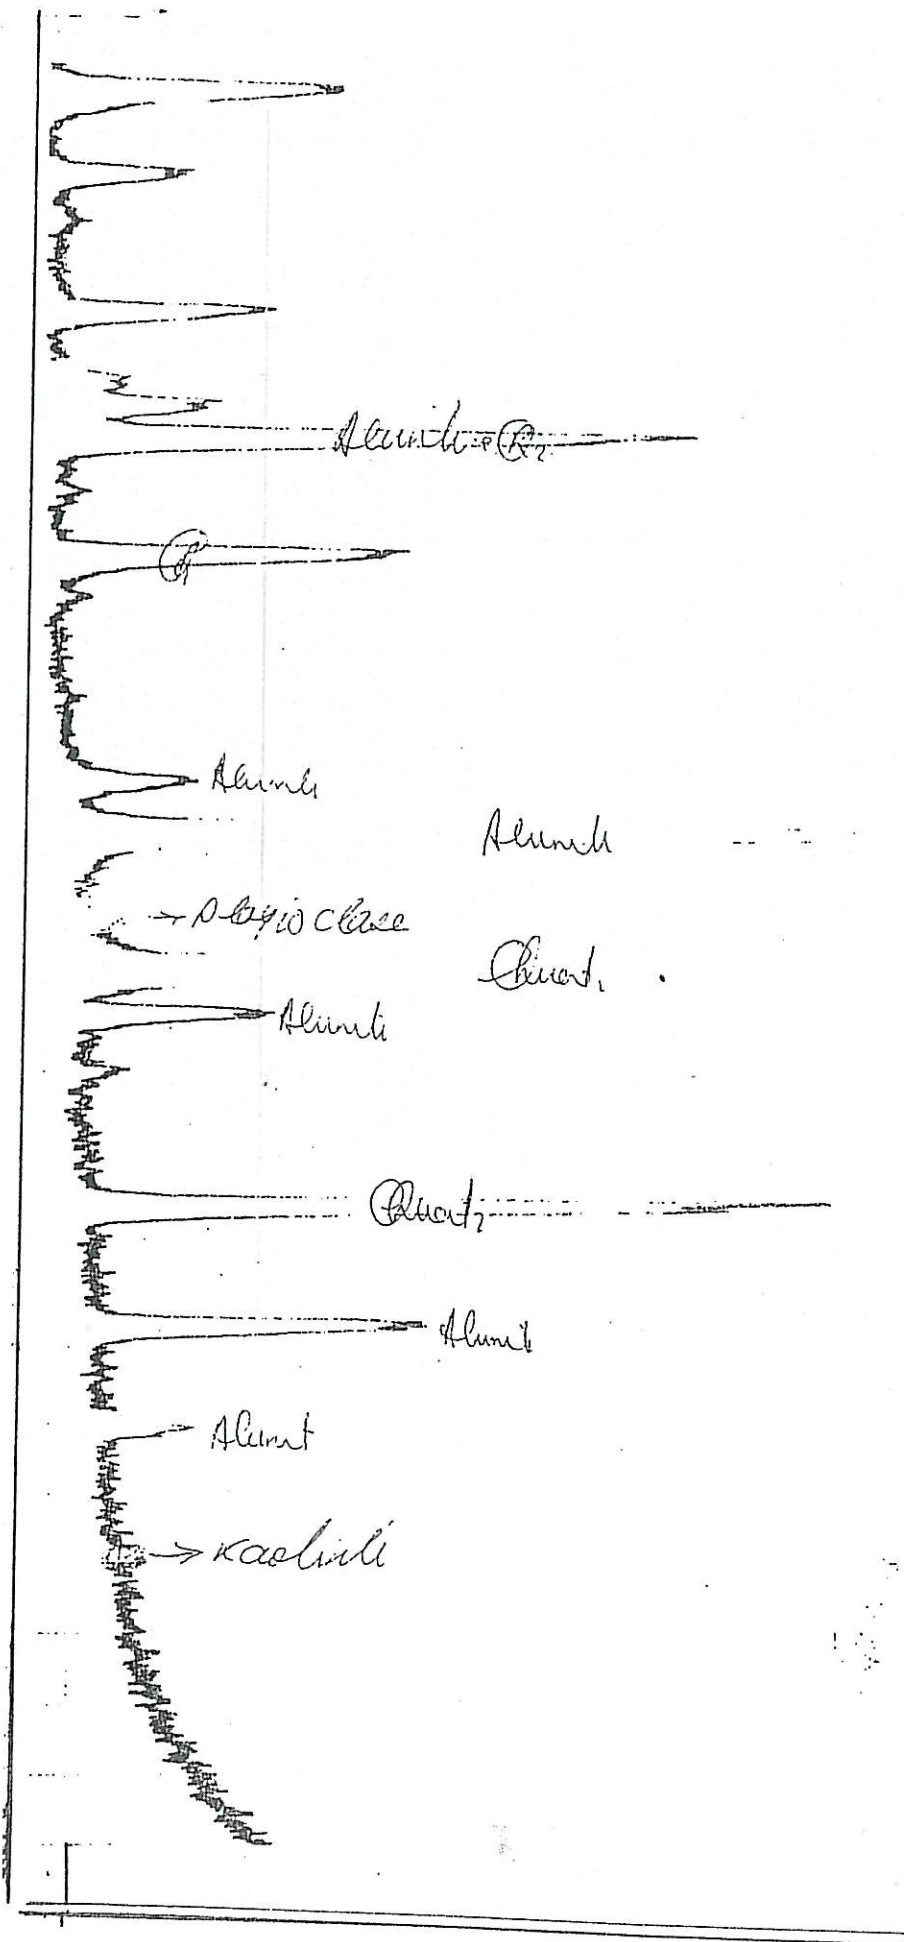 Alunit + Qz
Q
Alunit
Alunit
Plagioclase
Quartz
Alunit
Quartz
Alunit
Alunit
Kaolinit